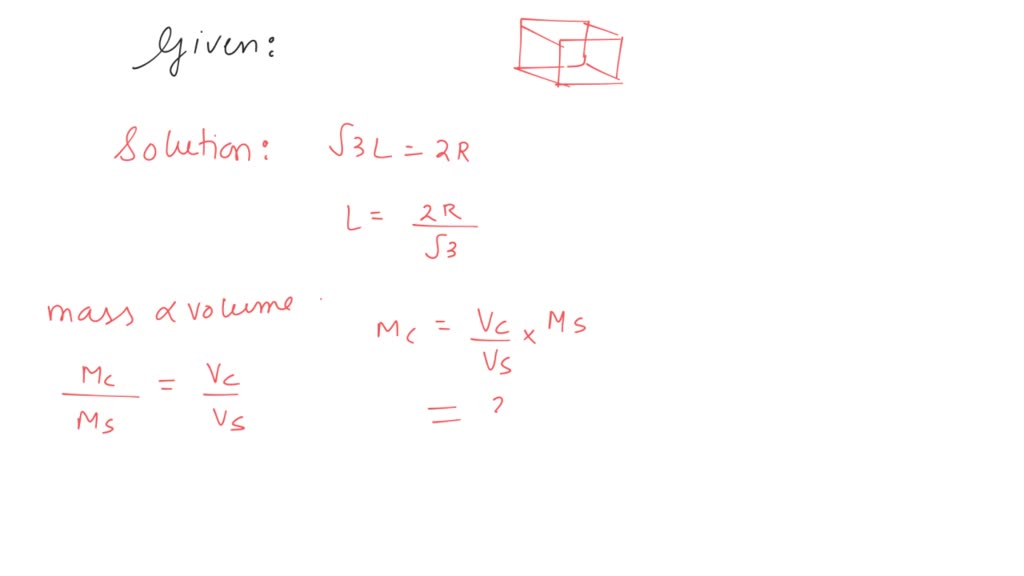 Given:
Solution: √3 L = 2R
L = 2R / √3
mass ∝ volume
Mc / Ms = Vc / Vs
Mc = Vc / Vs × Ms
= ?